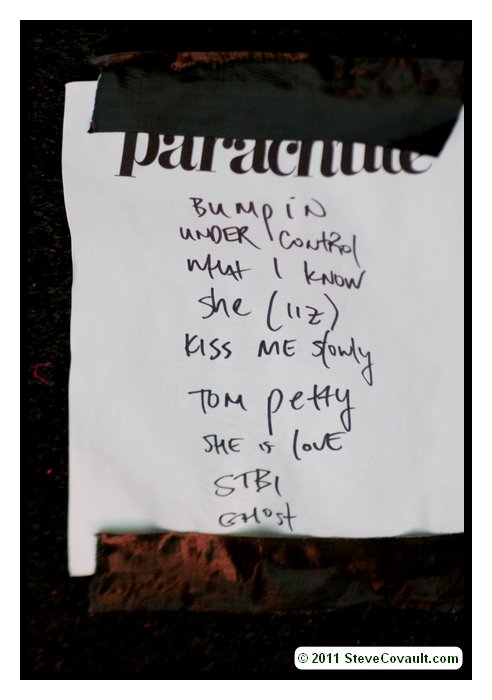 parachute
BUMPIN
UNDER CONTROL
WHAT I KNOW
She (LIZ)
KISS ME Slowly
TOM petty
SHE IS LOVE
STBI
GHOST
© 2011 SteveCovault.com